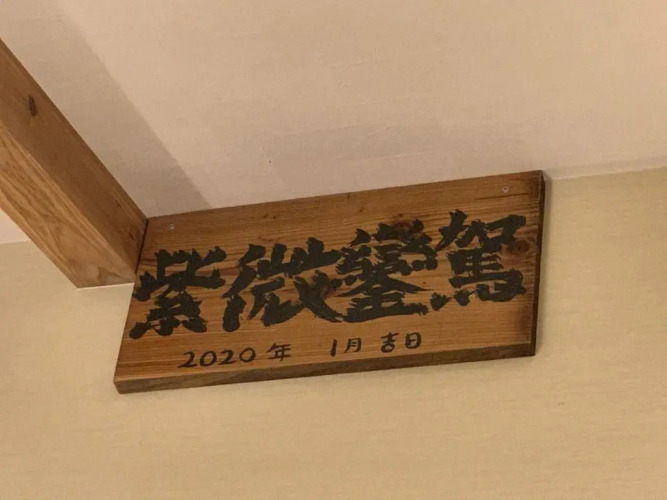 紫微鑾駕
2020年 1月吉日